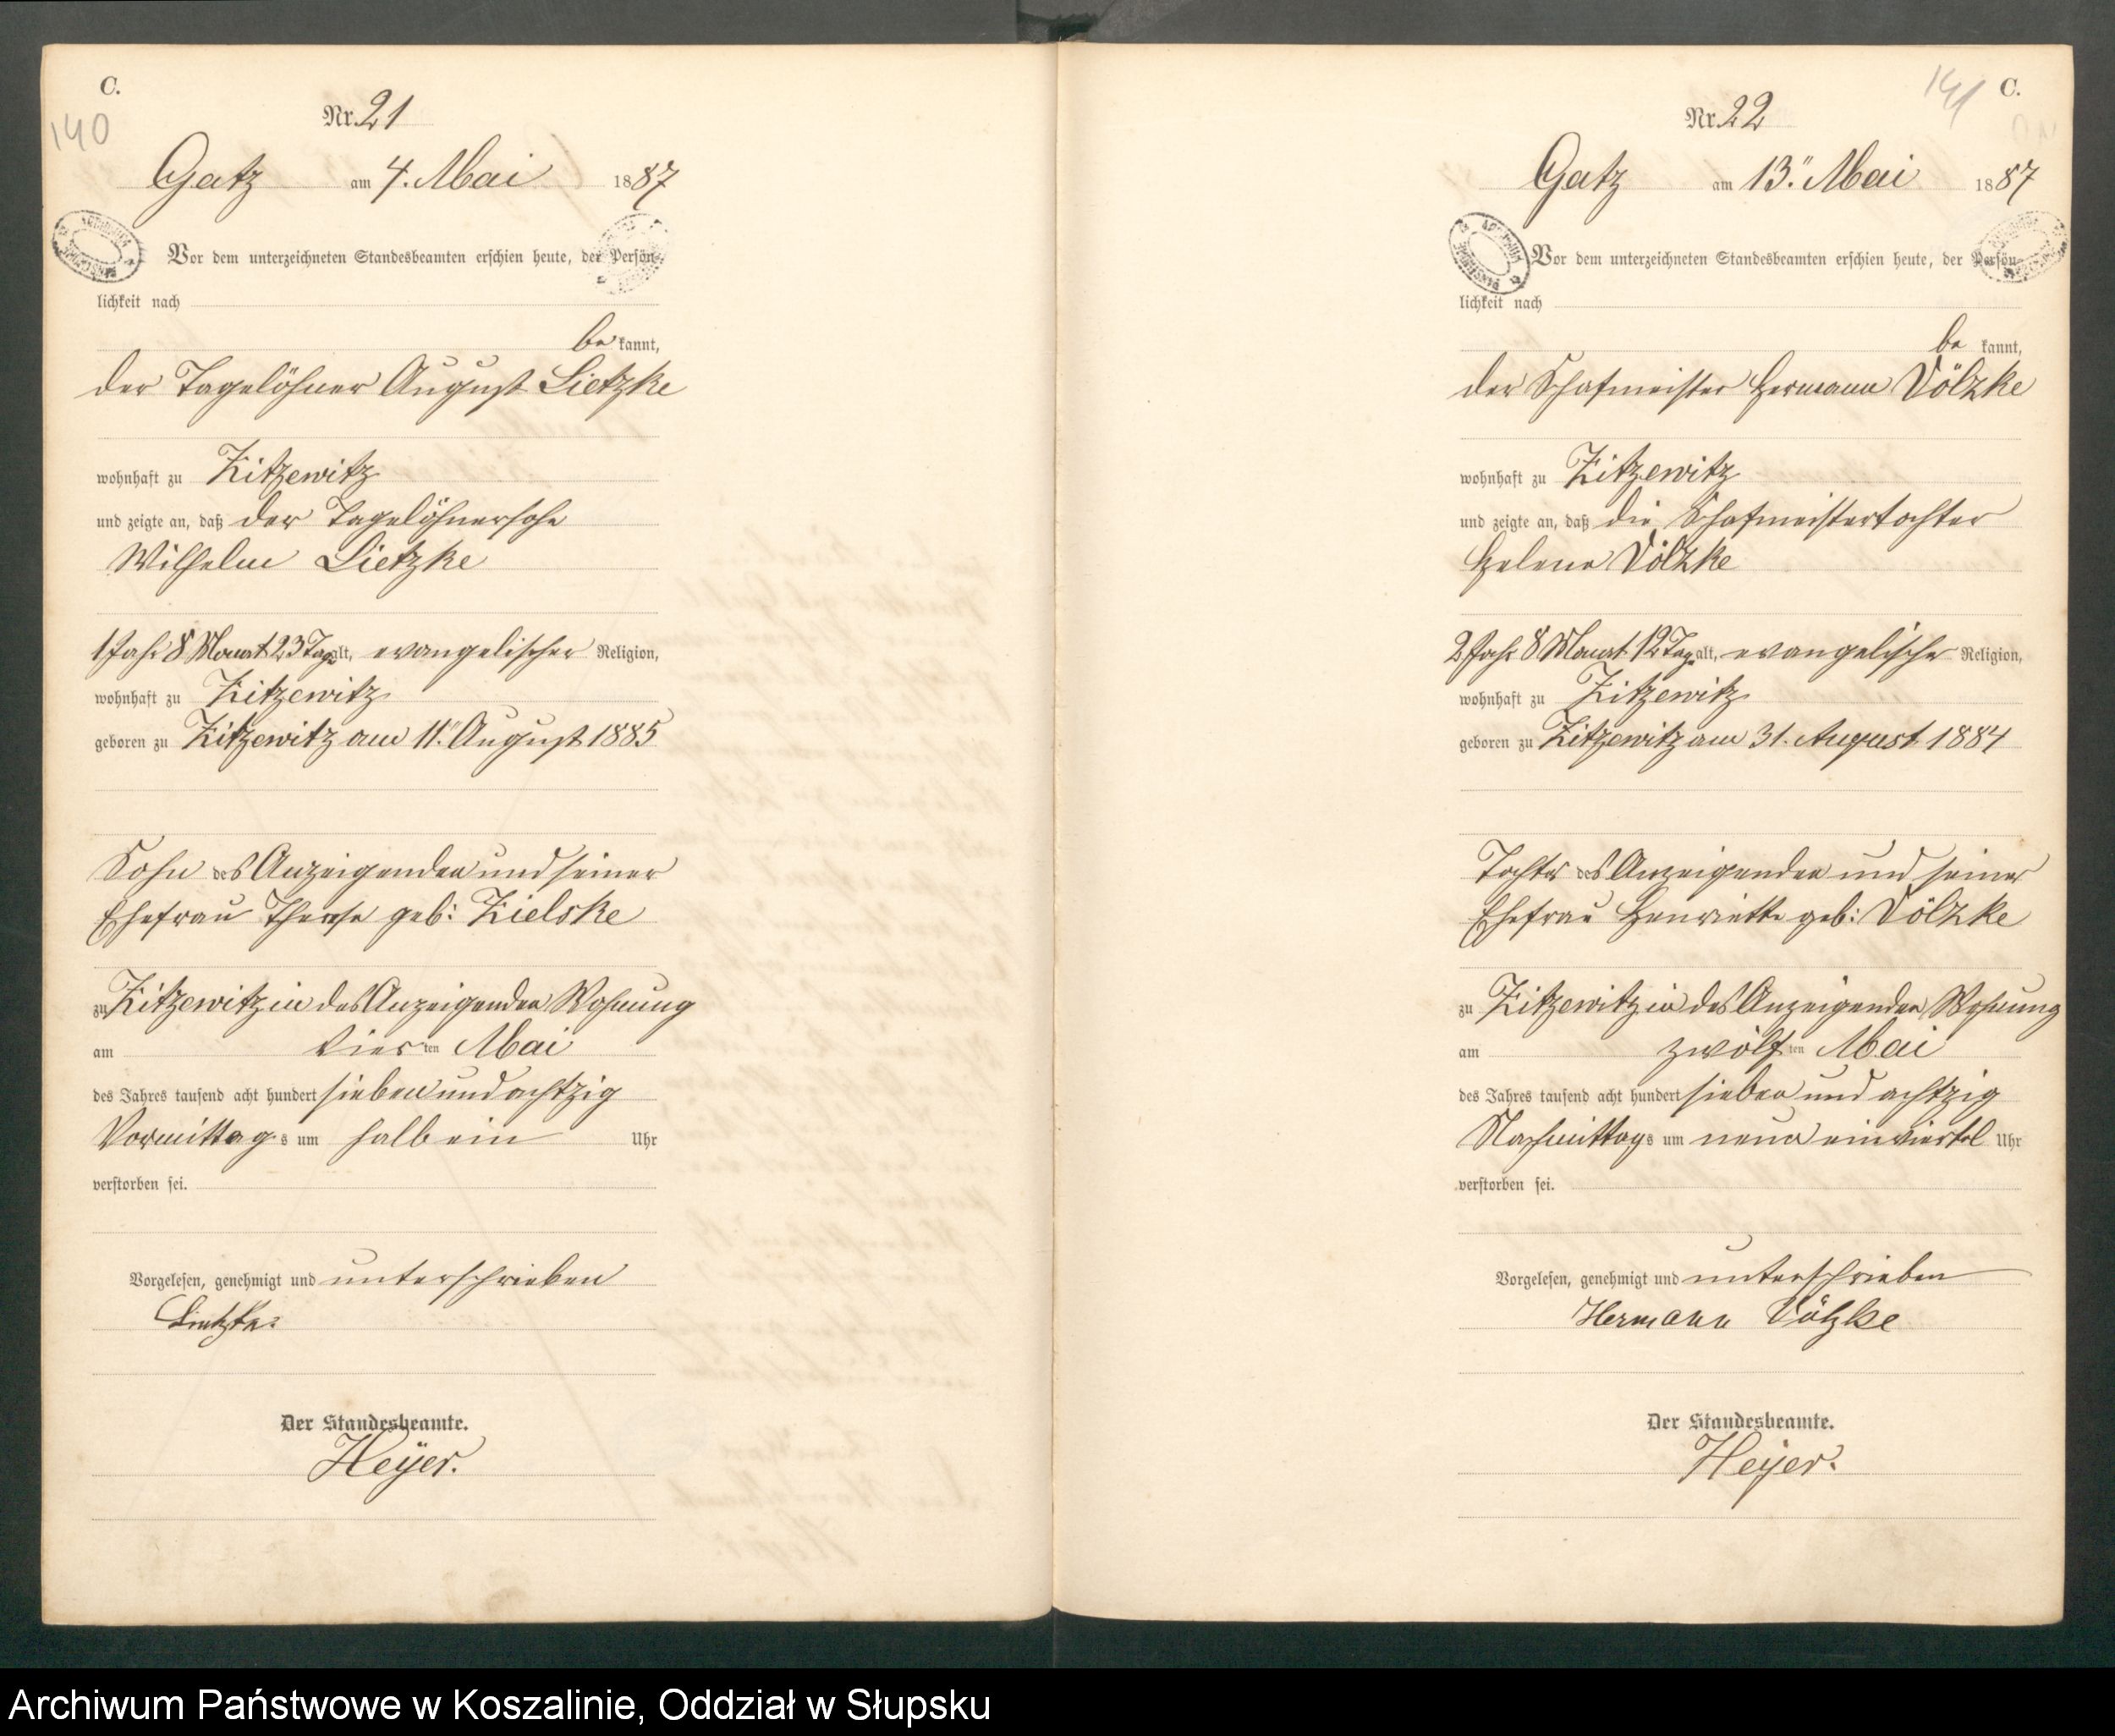 C.
140
Nr. 21
Gatz am 4. Mai 1887
Vor dem unterzeichneten Standesbeamten erschien heute, der Persön-
lichkeit nach
be kannt,
der Tagelöhner August Lietzke
wohnhaft zu Zitzewitz
und zeigte an, daß der Tagelöhnersohn
Wilhelm Lietzke
1 Jahr 8 Monat 23 Tage alt, evangelischer Religion,
wohnhaft zu Zitzewitz
geboren zu Zitzewitz am 11. August 1885
Sohn des Anzeigenden und seiner
Ehefrau Therese geb: Zielske
zu Zitzewitz in des Anzeigenden Wohnung
am vier ten Mai
des Jahres tausend acht hundert sieben und achtzig
Vormittags um halb ein Uhr
verstorben sei.
Vorgelesen, genehmigt und unterschrieben
Lietzke
Der Standesbeamte.
Heyer.
141
C.
Nr. 22
Gatz am 13. Mai 1887
Vor dem unterzeichneten Standesbeamten erschien heute, der Persön-
lichkeit nach
be kannt,
der Schafmeister Hermann Völzke
wohnhaft zu Zitzewitz
und zeigte an, daß die Schafmeistertochter
Helene Völzke
2 Jahr 8 Monat 12 Tage alt, evangelischer Religion,
wohnhaft zu Zitzewitz
geboren zu Zitzewitz am 31. August 1884
Tochter des Anzeigenden und seiner
Ehefrau Henriette geb: Völzke
zu Zitzewitz in des Anzeigenden Wohnung
am zwölf ten Mai
des Jahres tausend acht hundert sieben und achtzig
Nachmittags um neun einviertel Uhr
verstorben sei.
Vorgelesen, genehmigt und unterschrieben
Hermann Völzke
Der Standesbeamte.
Heyer.
Archiwum Państwowe w Koszalinie, Oddział w Słupsku